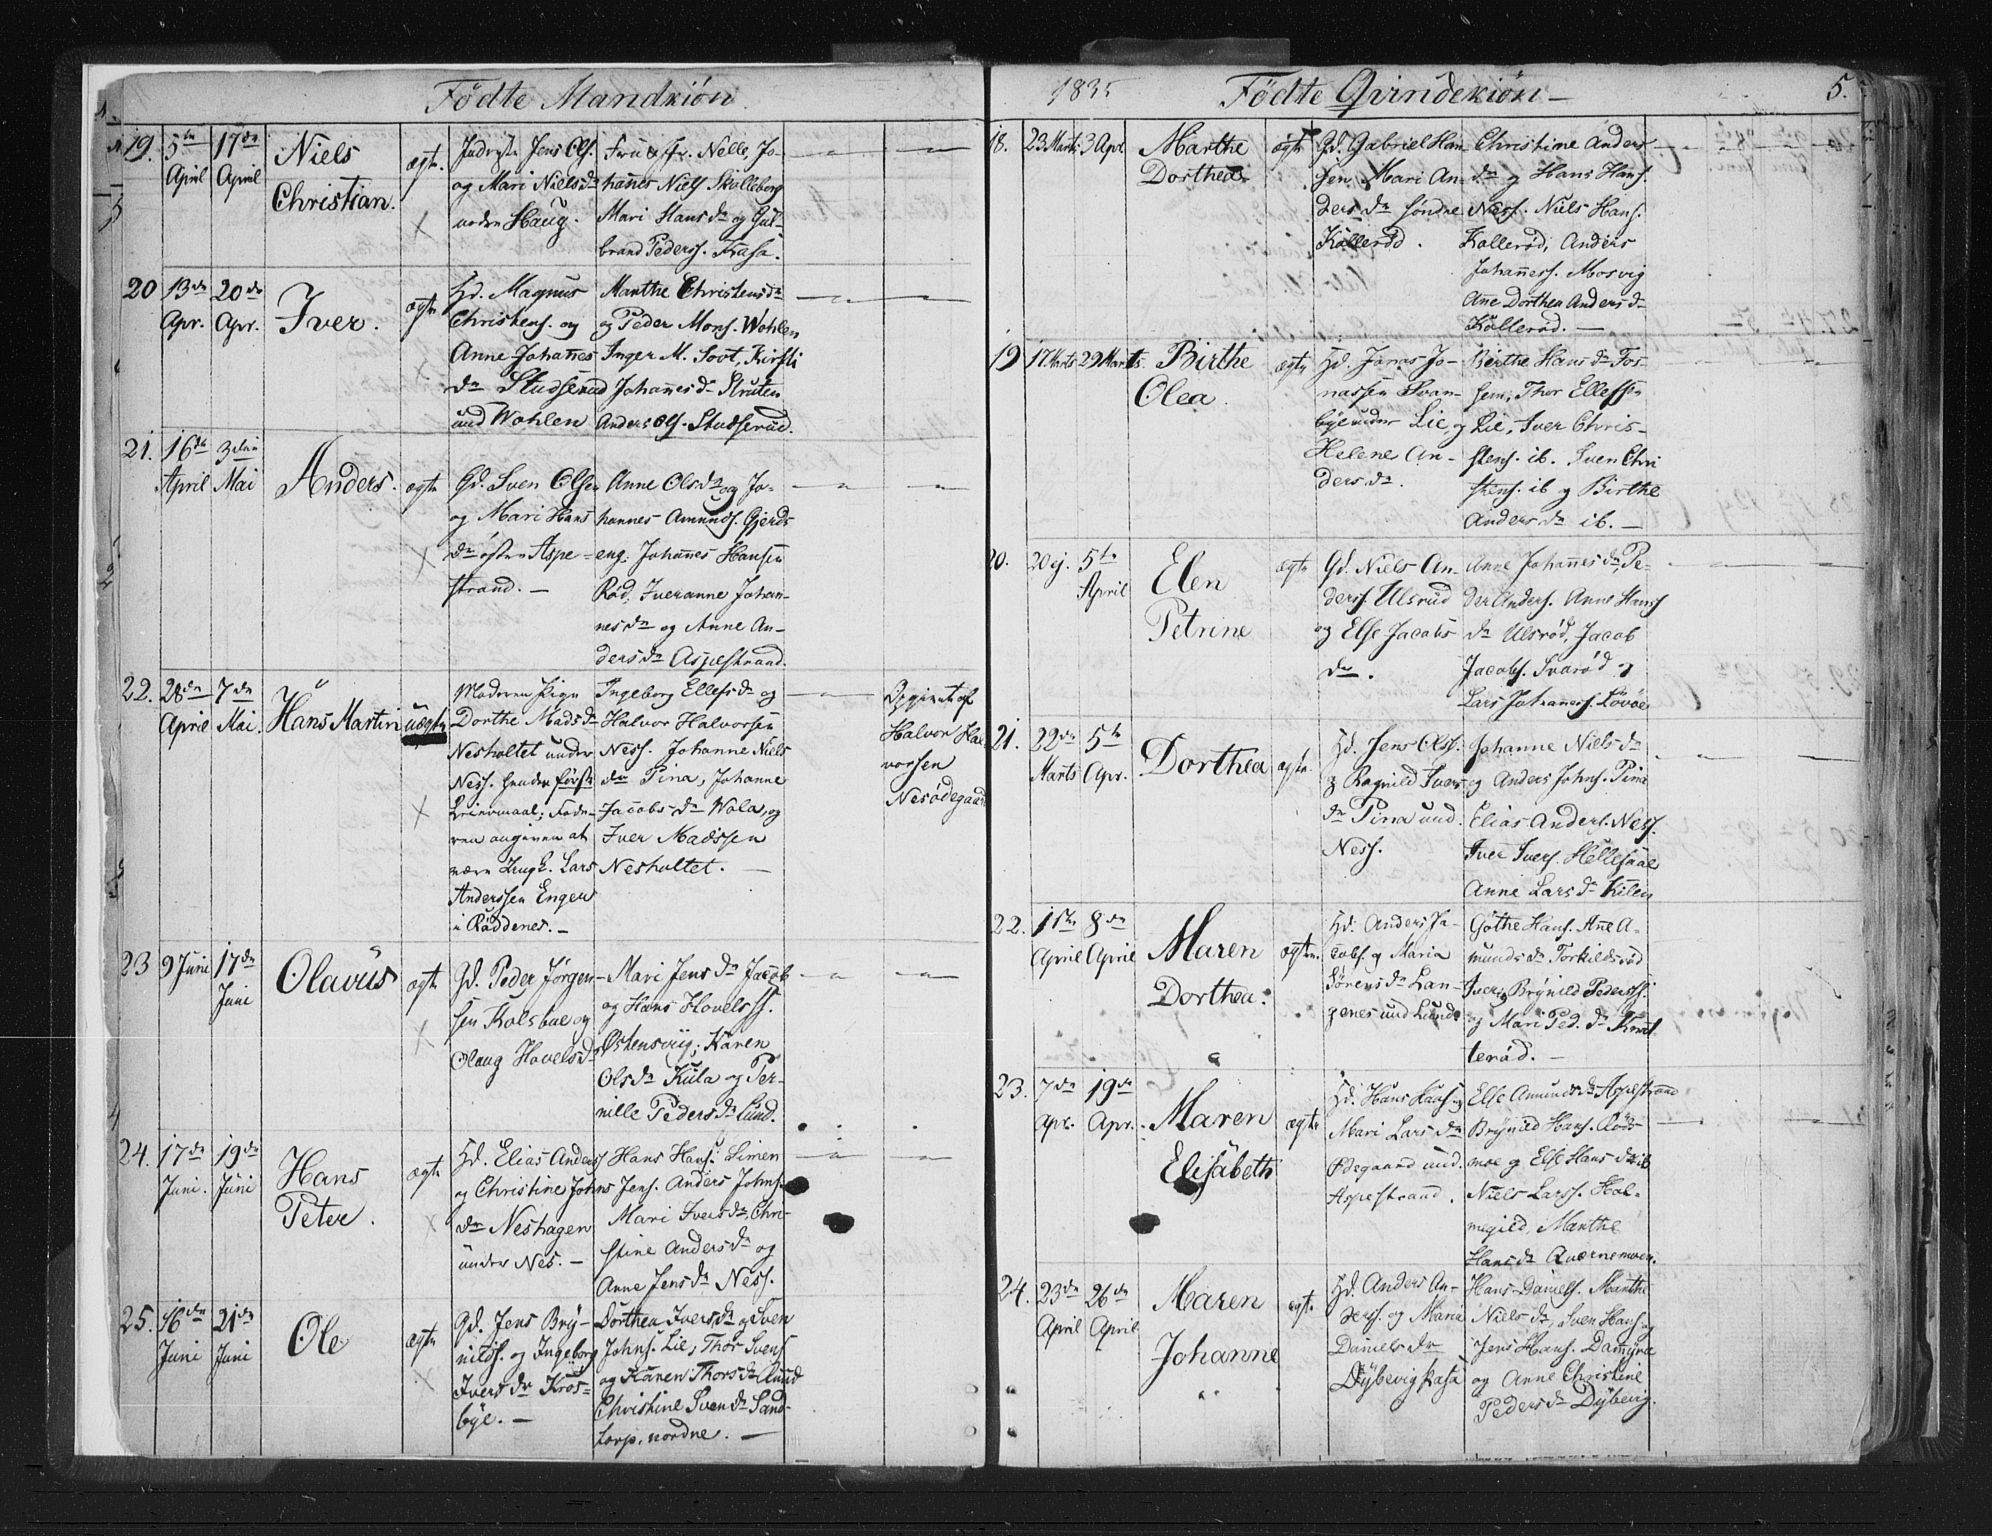 Födte Mandkiön
19.
5te April
17de April
Niels Christian.
ægte.
Jens Ols.
og Mari Nielsdr
Haug.
Nelle, Jo-
hannes Niels Skalleborg
Mari Hansdr og Gul-
brand Peders. Kasa.
20
13de Apr.
20de Apr.
Iver.
ægte
Hd. Magnus
Christens. og
Anne Johannes
dr Studserud
und Wohlen
Marthe Christensdr
og Peder Mons. Wohlen
Inger M. Soot, Kirsti
Johannesdr Struten
Anders Ols. Studserud.
21.
16de April
3die Mai
Anders.
ægte
Gd. Sven Olsen
og Mari Hans
dr östre Aspe-
strand. —
Anne Olsdr og Jo-
hannes Amunds. Gjerds
eng. Johannes Hansen
Röd, Iveranne Johan-
nesdr og Anne An-
dersdr Aspestrand.
22.
28de April
7de Mai.
Hans Martin
uægte
Moderen Pige
Dorthe Madsdr
Nesholtet under
Ness. hendes første
Leiermaal; Fade-
ren angiven at
være Ungk. Lars
Anderssen Engen
i Röddenes. —
Ingeborg Ellefsdr og
Halvor Halvorsen
Ness. Johanne Niels
dr Pina, Johanne
Jacobsdr Wola, og
Iver Madssen
Nesholtet. —
Opgivet af
Halvor Hal-
vorsen
Nesödegaard
23
9 Juni
17de Juni
Olavus
ægte
Gd. Peder Jörgen-
sen Kolsboe og
Olaug Hovelsdr
Mari Jensdr Jacob
og Hans Hovelss.
Östensvig; Karen
Olsdr Kula og Per-
nille Pedersdr Lund.
24.
17de Juni.
19de Juni
Hans Peter.
ægte
Hd. Elias Anders
og Christine Johns
dr Neshagen
under Nes. —
Hans Hans. Simen
Jens. Anders Johns.
Mari Iversdr, Chri-
stine Andersdr og
Anne Jensdr Ness.
25.
16de Juni
21de Juni
Ole
ægte
Gd. Jens Bry-
nilds. og Ingeborg
Iversdr Kros-
bye. —
Dorthea Iversdr og Sven
Johns. Lie, Thor Svens
og Karen Thorsdr Lund
Christine Svendr Sand-
torp, nordre. —
1835
Födte Qvindekiön —
5.
18.
23 Marts
3 Apr.
Marthe Dorthea
ægte
Gd. Gabriel Han
sen Mari An-
dersdr söndre
Kollerød.
Christine Anders
dr og Hans Hans.
Ness. Niels Hans.
Kollerød, Anders
Johanness. Mosvig
Ane Dorthea Andersdr
Kollerød. —
19
17 Marts
29 Marts
Birthe Olea.
ægte
Hd. Jonas Jo-
nassen Svan-
bye under Lie, og
Helene An-
dersdr.
Berthe Hansdr Fos-
sem, Thor Ellefsen
Lie, Iver Chris-
stens. ib. Sven Chri
stens. ib og Birthe
Andersdr ib. —
20.
20 ej.
5te April
Elen Petrine
ægte
Gd. Niels An-
derss. Ulsrud
og Else Jacobs
dr.
Anne Johannesdr, Pe-
der Anders. Anne Hans
dr Ulsröd, Jacob
Jacobs. Svaröd og
Lars Johanness. Lövöe
21.
22de Marts
5te Apr.
Dorthea
ægte.
Hd. Jens Olss.
og Ragnild Ivers
dr Pina und.
Ness.
Johanne Nielsdr
og Anders Johns. Pina
Elias Anders. Ness.
Iver Ivers. Hellesaae
Anne Larsdr Kilen
22.
1ste April
8de April
Maren Dorthea.
ægte.
Hd. Anders Ja-
cobs. og Maria
Sörensdr Lan-
genes und Lund
Göthe Hans. Ane A-
mundsdr Torkildsröd
Iver, Brynild Pederss.
og Mari Ped.dr Knat-
teröd. —
23.
7de Apr.
19de Apr.
Maren Elisabeth
ægte
Hd. Hans Hans. og
Mari Larsdr
Ödegaard und.
Aspestrand.
Else Amundsdr Aspestrand
Brynild Hans. Röds
moe og Else Hansdr ib
Niels Larss. Hol-
megild, Marthe
Hansdr Quernemoen.
24.
23de April
26de April
Maren Johanne
ægte
Hd. Anders An-
derss. og Maria
Danielsdr
Dybevig Kasa
Hans Daniels. Marthe
Nielsdr, Sven Hans. og
Jens Hans. Damyra
og Anne Christine
Pedersdr Dybevig.